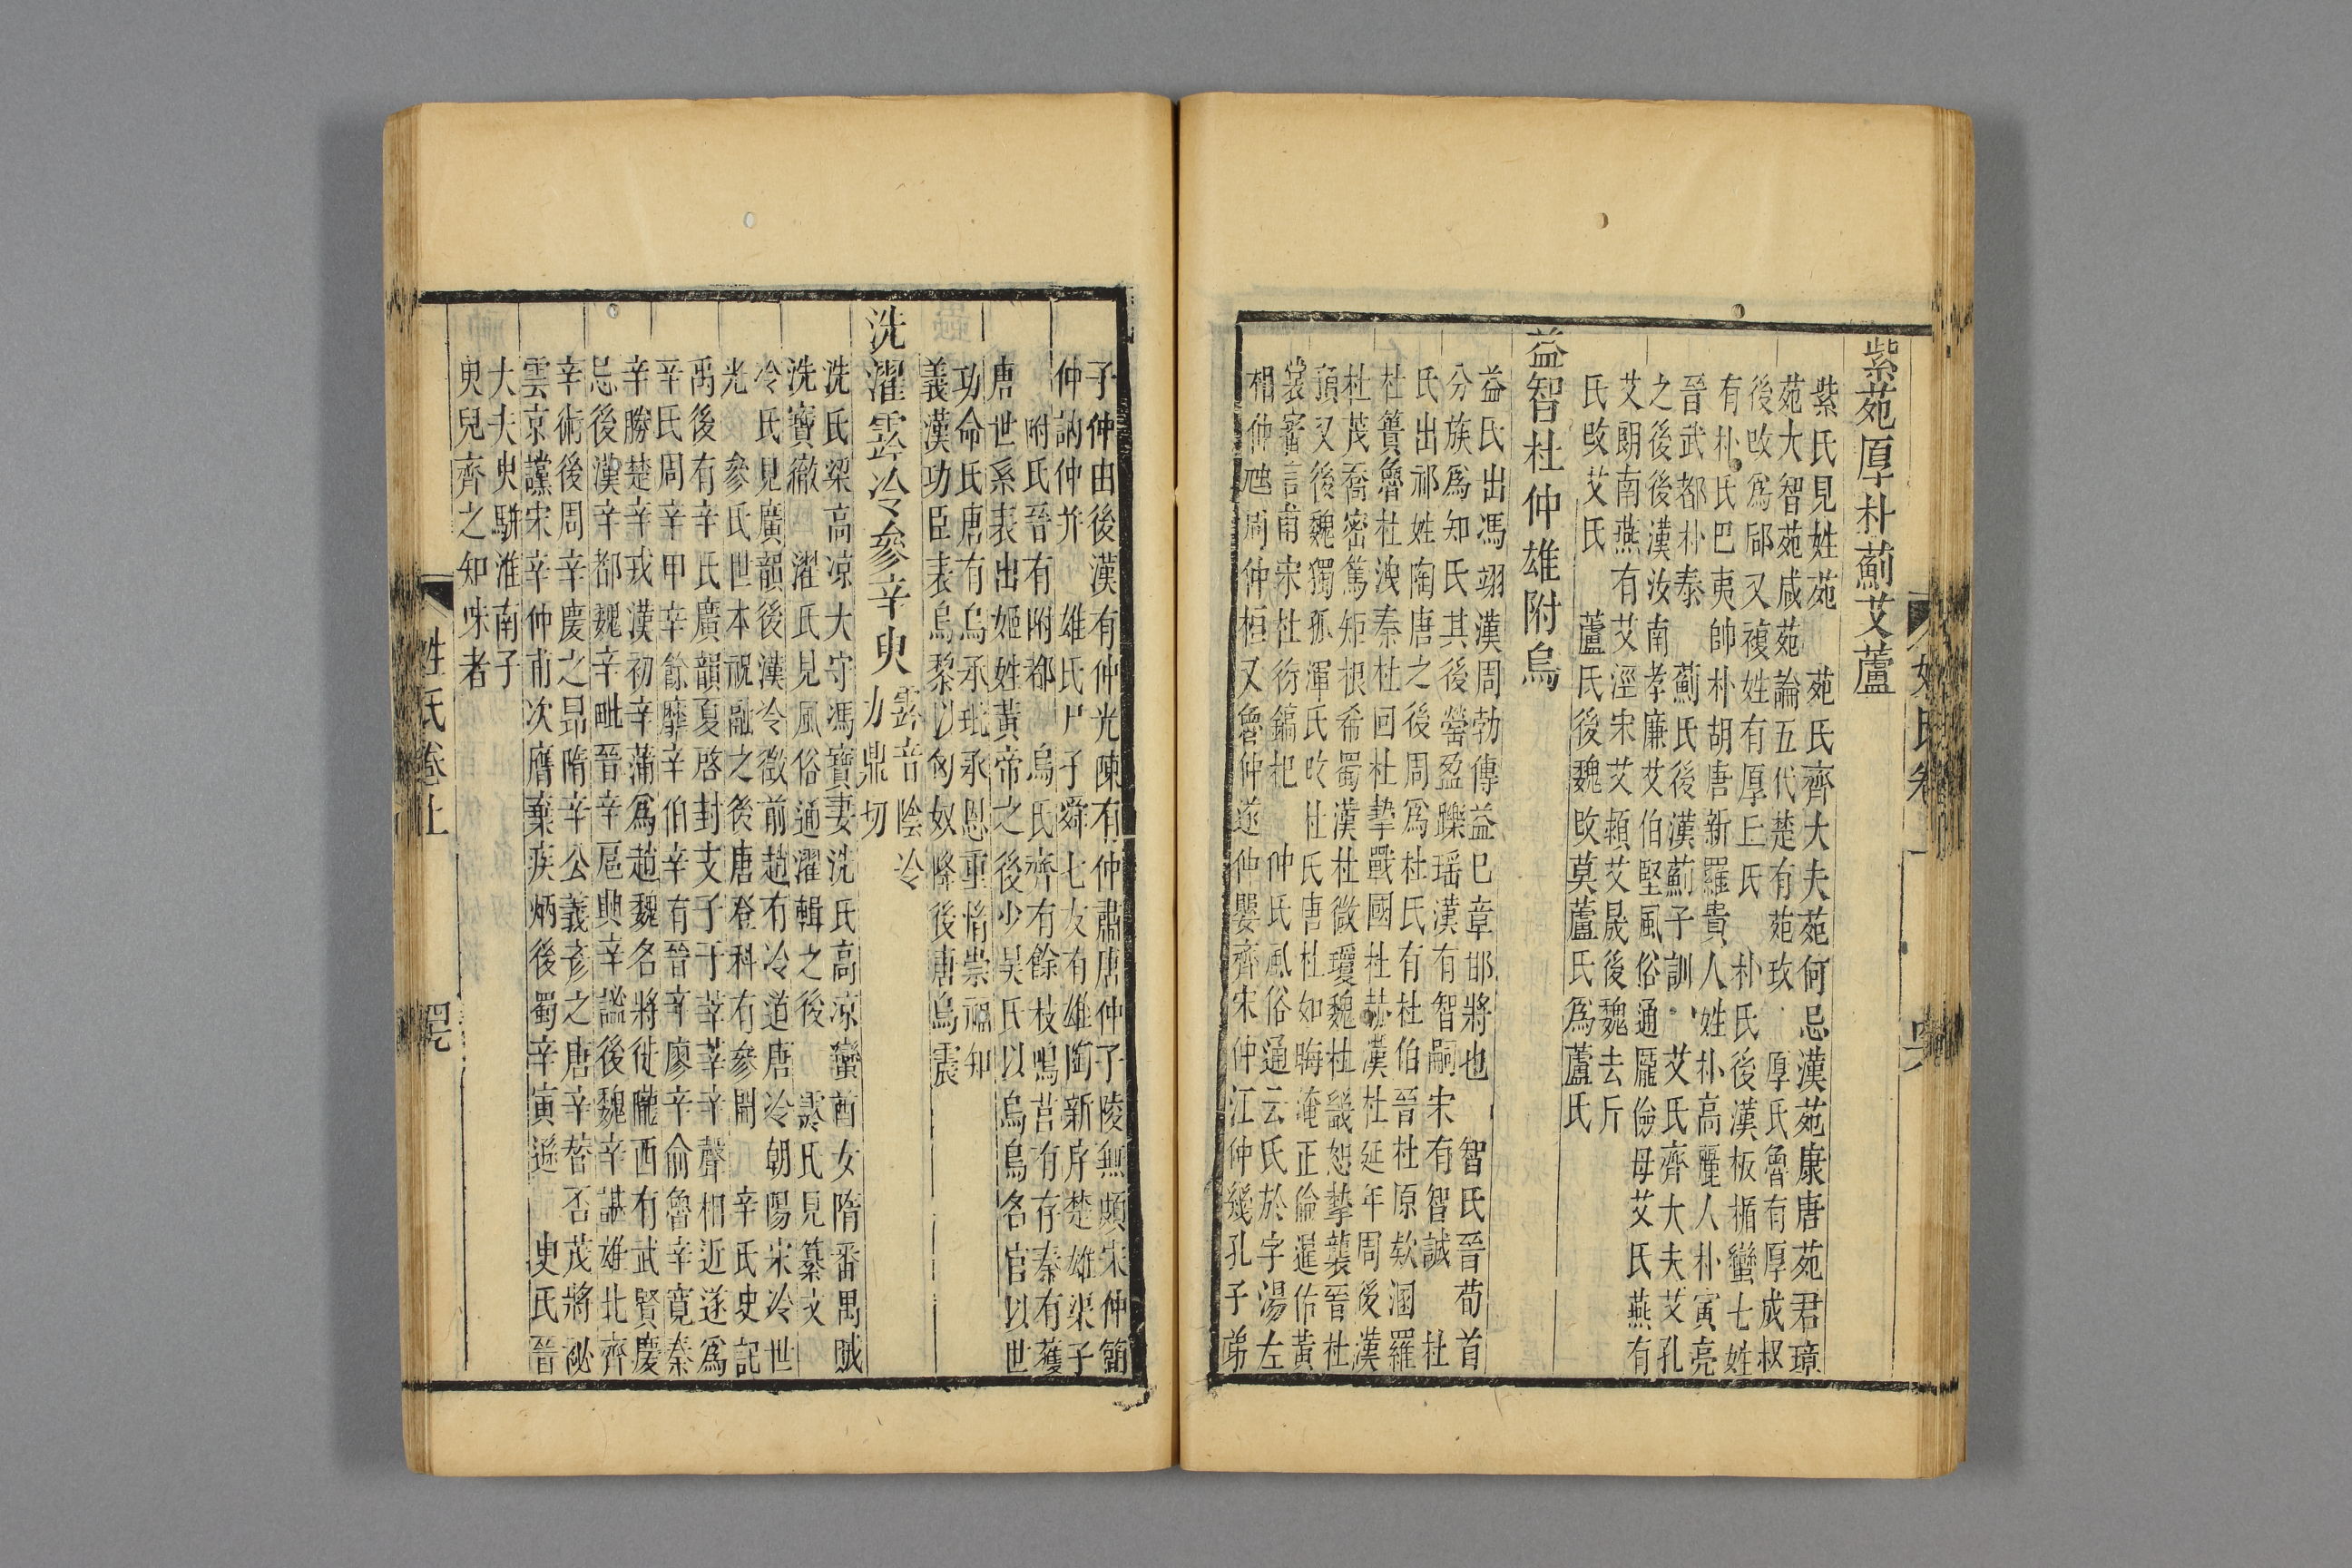 紫菀厚朴薊艾蘆
紫氏見姓苑　菀氏齊大夫菀何忌漢菀康唐菀君璋
菀大智菀咸菀論五代楚有菀玫　厚氏魯有厚成叔
後改爲郈又複姓有厚丘氏　朴氏後漢板楯蠻七姓
有朴氏巴夷帥朴胡唐新羅貴人姓朴高麗人朴寅亮
晉武都朴泰　薊氏後漢薊子訓　艾氏齊大夫艾孔
之後後漢汝南孝廉艾伯堅風俗通龐儉母艾氏燕有
艾朗南燕有艾涇宋艾頓艾晟後魏去斤
氏改艾氏　蘆氏後魏改莫蘆氏爲蘆氏
益智杜仲雄附烏
益氏出馮翊漢周勃傳益已章邯將也　智氏晉荀首
分族爲知氏其後罃盈躒瑤漢有智嗣宋有智誠　杜
氏出祁姓陶唐之後周爲杜氏有杜伯晉杜原欵溷羅
杜蕢魯杜洩秦杜回杜摯戰國杜赫漢杜延年周後漢
杜茂喬密篤矩根希蜀漢杜微瓊魏杜畿恕摯襲晉杜
預又後魏獨孤渾氏改杜氏唐杜如晦淹正倫暹佑黃
裳審言甫宋杜衍鎬杞　仲氏風俗通云氏於字湯左
相仲虺周仲桓又魯仲遂仲嬰齊宋仲江仲幾孔子弟
子仲由後漢有仲光陳有仲肅唐仲子陵無頗宋仲簡
仲訥仲并　雄氏尸子舜七友有雄陶新序楚雄渠子
附氏晉有附都　烏氏齊有餘枝鳴莒有存秦有獲
唐世系表出姬姓黃帝之後少昊氏以烏鳥名官以世
功命氏唐有烏承玼承恩重脩崇福知
義漢功臣表烏黎以匈奴降後唐烏震
洗濯䨩冷參辛㬰 䨩音陰冷
力鼎切
洗氏梁高凉大守馮寶妻洗氏高凉蠻酋女隋番禺賊
洗寶徹　濯氏見風俗通濯輯之後　䨩氏見纂文
冷氏見廣韻後漢冷徵前趙有冷道唐冷朝陽宋冷世
光　參氏世本祝融之後唐登科有參開　辛氏史記
禹後有辛氏廣韻夏啓封支子于莘莘辛聲相近遂爲
辛氏周辛甲辛餘靡辛伯辛有晉辛廖辛俞魯辛寬秦
辛勝楚辛戎漢初辛蒲爲趙魏名將徙隴西有武賢慶
忌後漢辛都魏辛毗晉辛扈典辛謐後魏辛諶雄北齊
辛術後周辛慶之昻隋辛公義彥之唐辛替否茂將祕
雲京讜宋辛仲甫次膺棄疾炳後蜀辛寅遜　㬰氏晉
大夫㬰駢淮南子
㬰兒齊之知味者
姓氏卷上